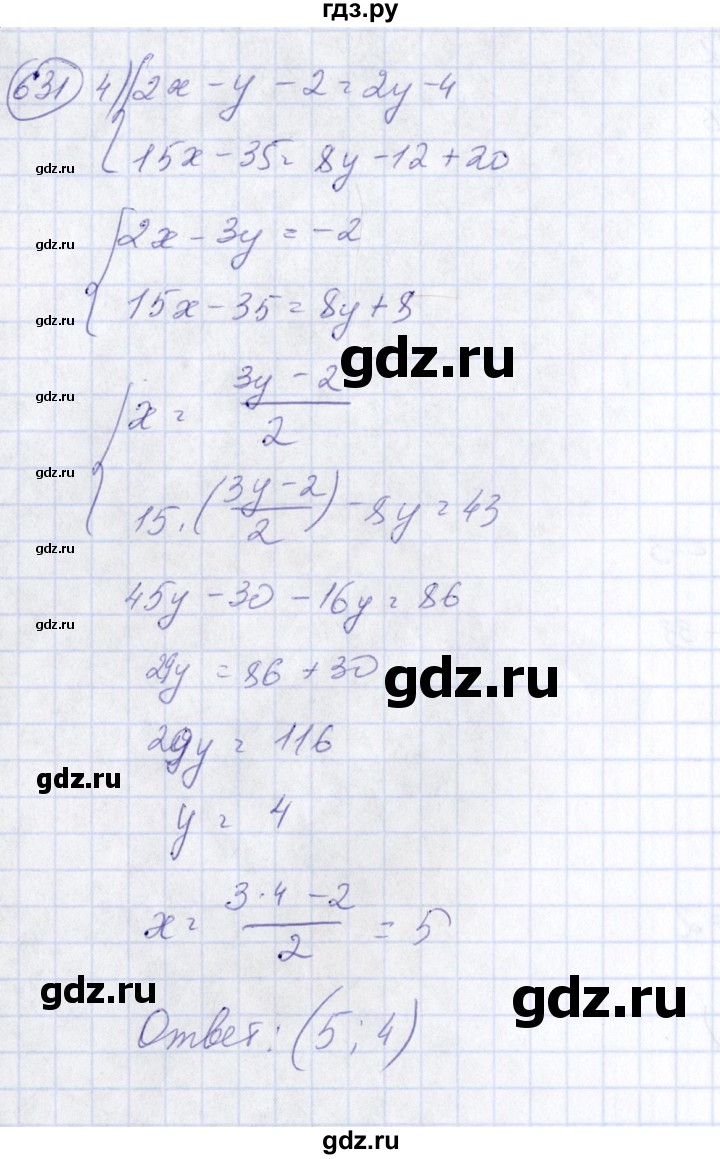 гдз.ру
631 4) { 2x - y - 2 = 2y - 4
15x - 35 = 8y - 12 + 20
gdz.ru
gdz.ru
{ 2x - 3y = -2
15x - 35 = 8y + 8
gdz.ru
gdz.ru
{ x = (3y - 2)/2
gdz.ru
gdz.ru
15 · ((3y - 2)/2) - 8y = 43
gdz.ru
45y - 30 - 16y = 86
gdz.ru
29y = 86 + 30
gdz.ru
29y = 116
gdz.ru
y = 4
x = (3·4 - 2)/2 = 5
gdz.ru
gdz.ru
Ответ: (5; 4)
gdz.ru